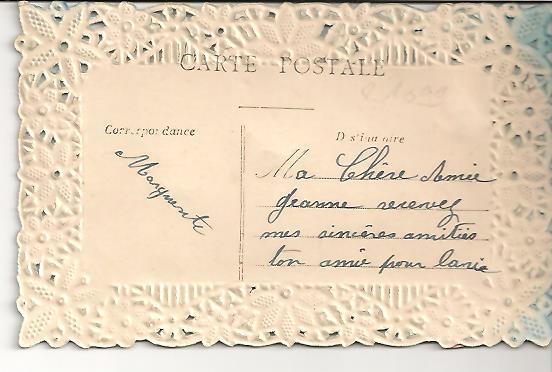 CARTE POSTALE
Correspondance
Marguerite
Ma Chère Amie
Jeanne recevez
mes sincères amitiés
ton amie pour la vie